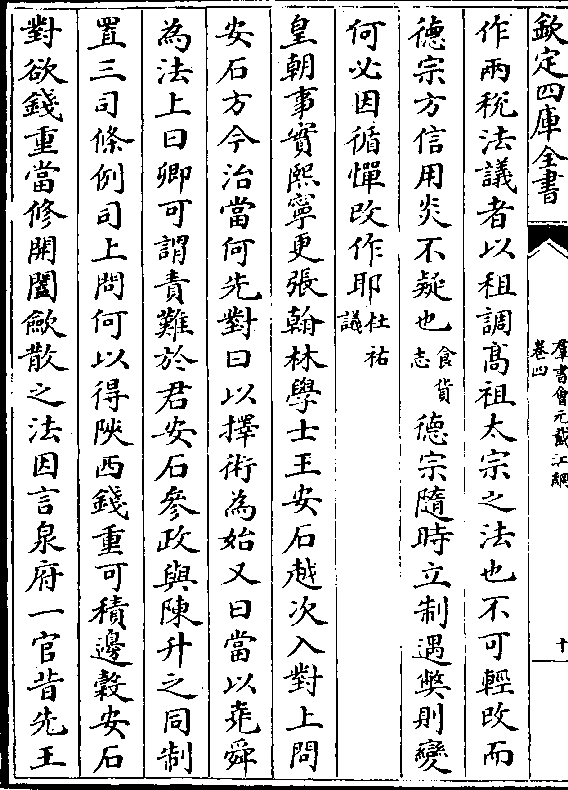 欽定四庫全書
羣書會元截江網
卷四
十
作兩稅法議者以租調髙祖太宗之法也不可輕改而
德宗方信用炎不疑也食貨志德宗隨時立制遇弊則變
何必因循憚改作耶杜祐議
皇朝事實熙寧更張翰林學士王安石越次入對上問
安石方今治當何先對曰以擇術為始又曰當以堯舜
為法上曰卿可謂責難於君安石參政與陳升之同制
置三司條例司上問何以得陜西錢重可積邊穀安石
對欲錢重當修開闔歛散之法因言泉府一官昔先王